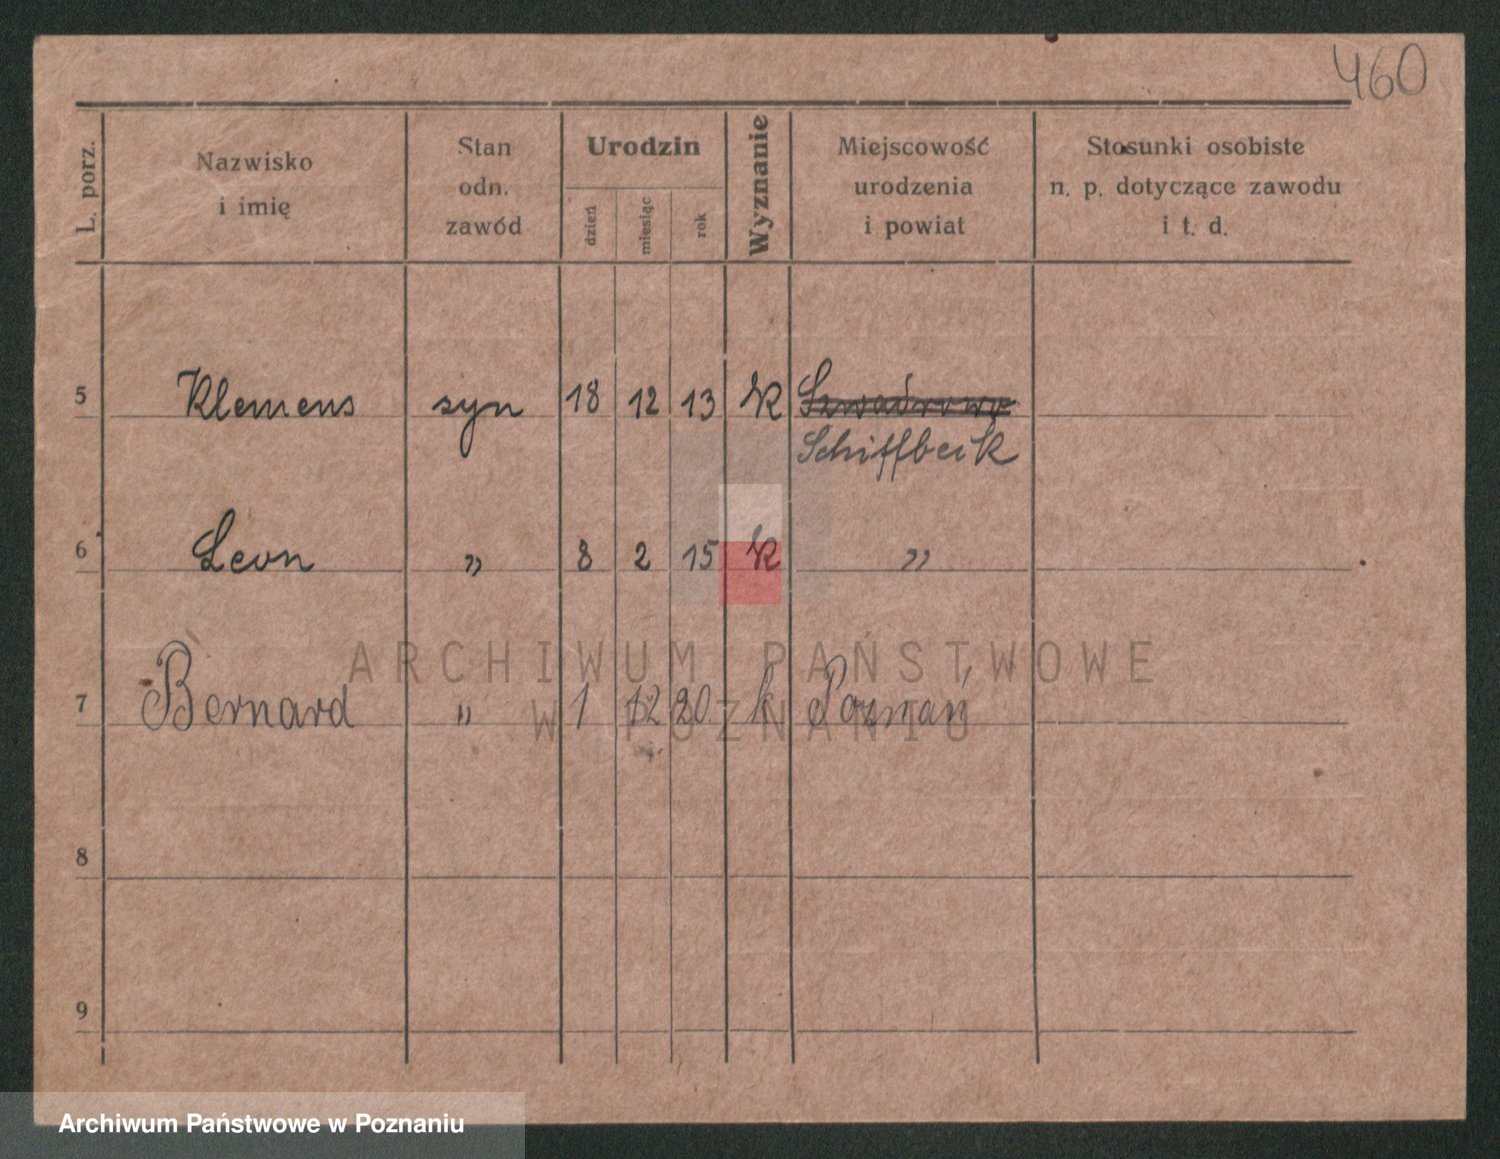 460
L. porz.
Nazwisko
i imię
Stan
odn.
zawód
Urodzin
dzień
miesiąc
rok
Wyznanie
Miejscowość
urodzenia
i powiat
Stosunki osobiste
n. p. dotyczące zawodu
i t. d.
5 Klemens syn 18 12 13 k
Schiffbeik
6 Leon " 8 2 15 k "
7 Bernard " 1 12 20. k Poznań
8
9
ARCHIWUM PAŃSTWOWE
W POZNANIU
Archiwum Państwowe w Poznaniu